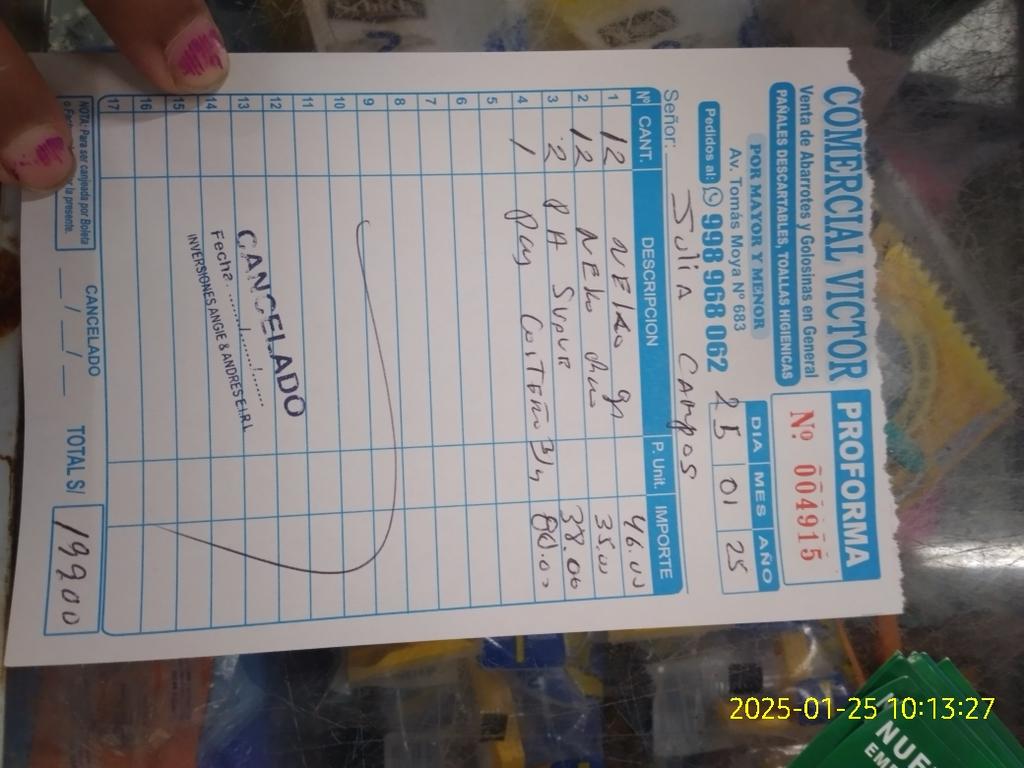 COMERCIAL VICTOR
Venta de Abarrotes y Golosinas en General
PAÑALES DESCARTABLES, TOALLAS HIGIENICAS
POR MAYOR Y MENOR
Av. Tomás Moya Nº 683
Pedidos al: 998 968 062
PROFORMA
Nº 004915
DIA MES AÑO
25 01 25
Señor: Julia Campos
Nº CANT. DESCRIPCION P. Unit. IMPORTE
1 12 46.00
2 12 35.00
3 2 PA Super 38.00
4 1 Costeño 80.00
5
6
7
8
9
10
11
12
13
14
15
16
17
CANCELADO
Fecha
INVERSIONES ANGIE & ANDRES E.I.R.L
NOTA: Para ser canjeada por Boleta
la presente.
CANCELADO
TOTAL S/ 199.00
NUE
EM
2025-01-25 10:13:27